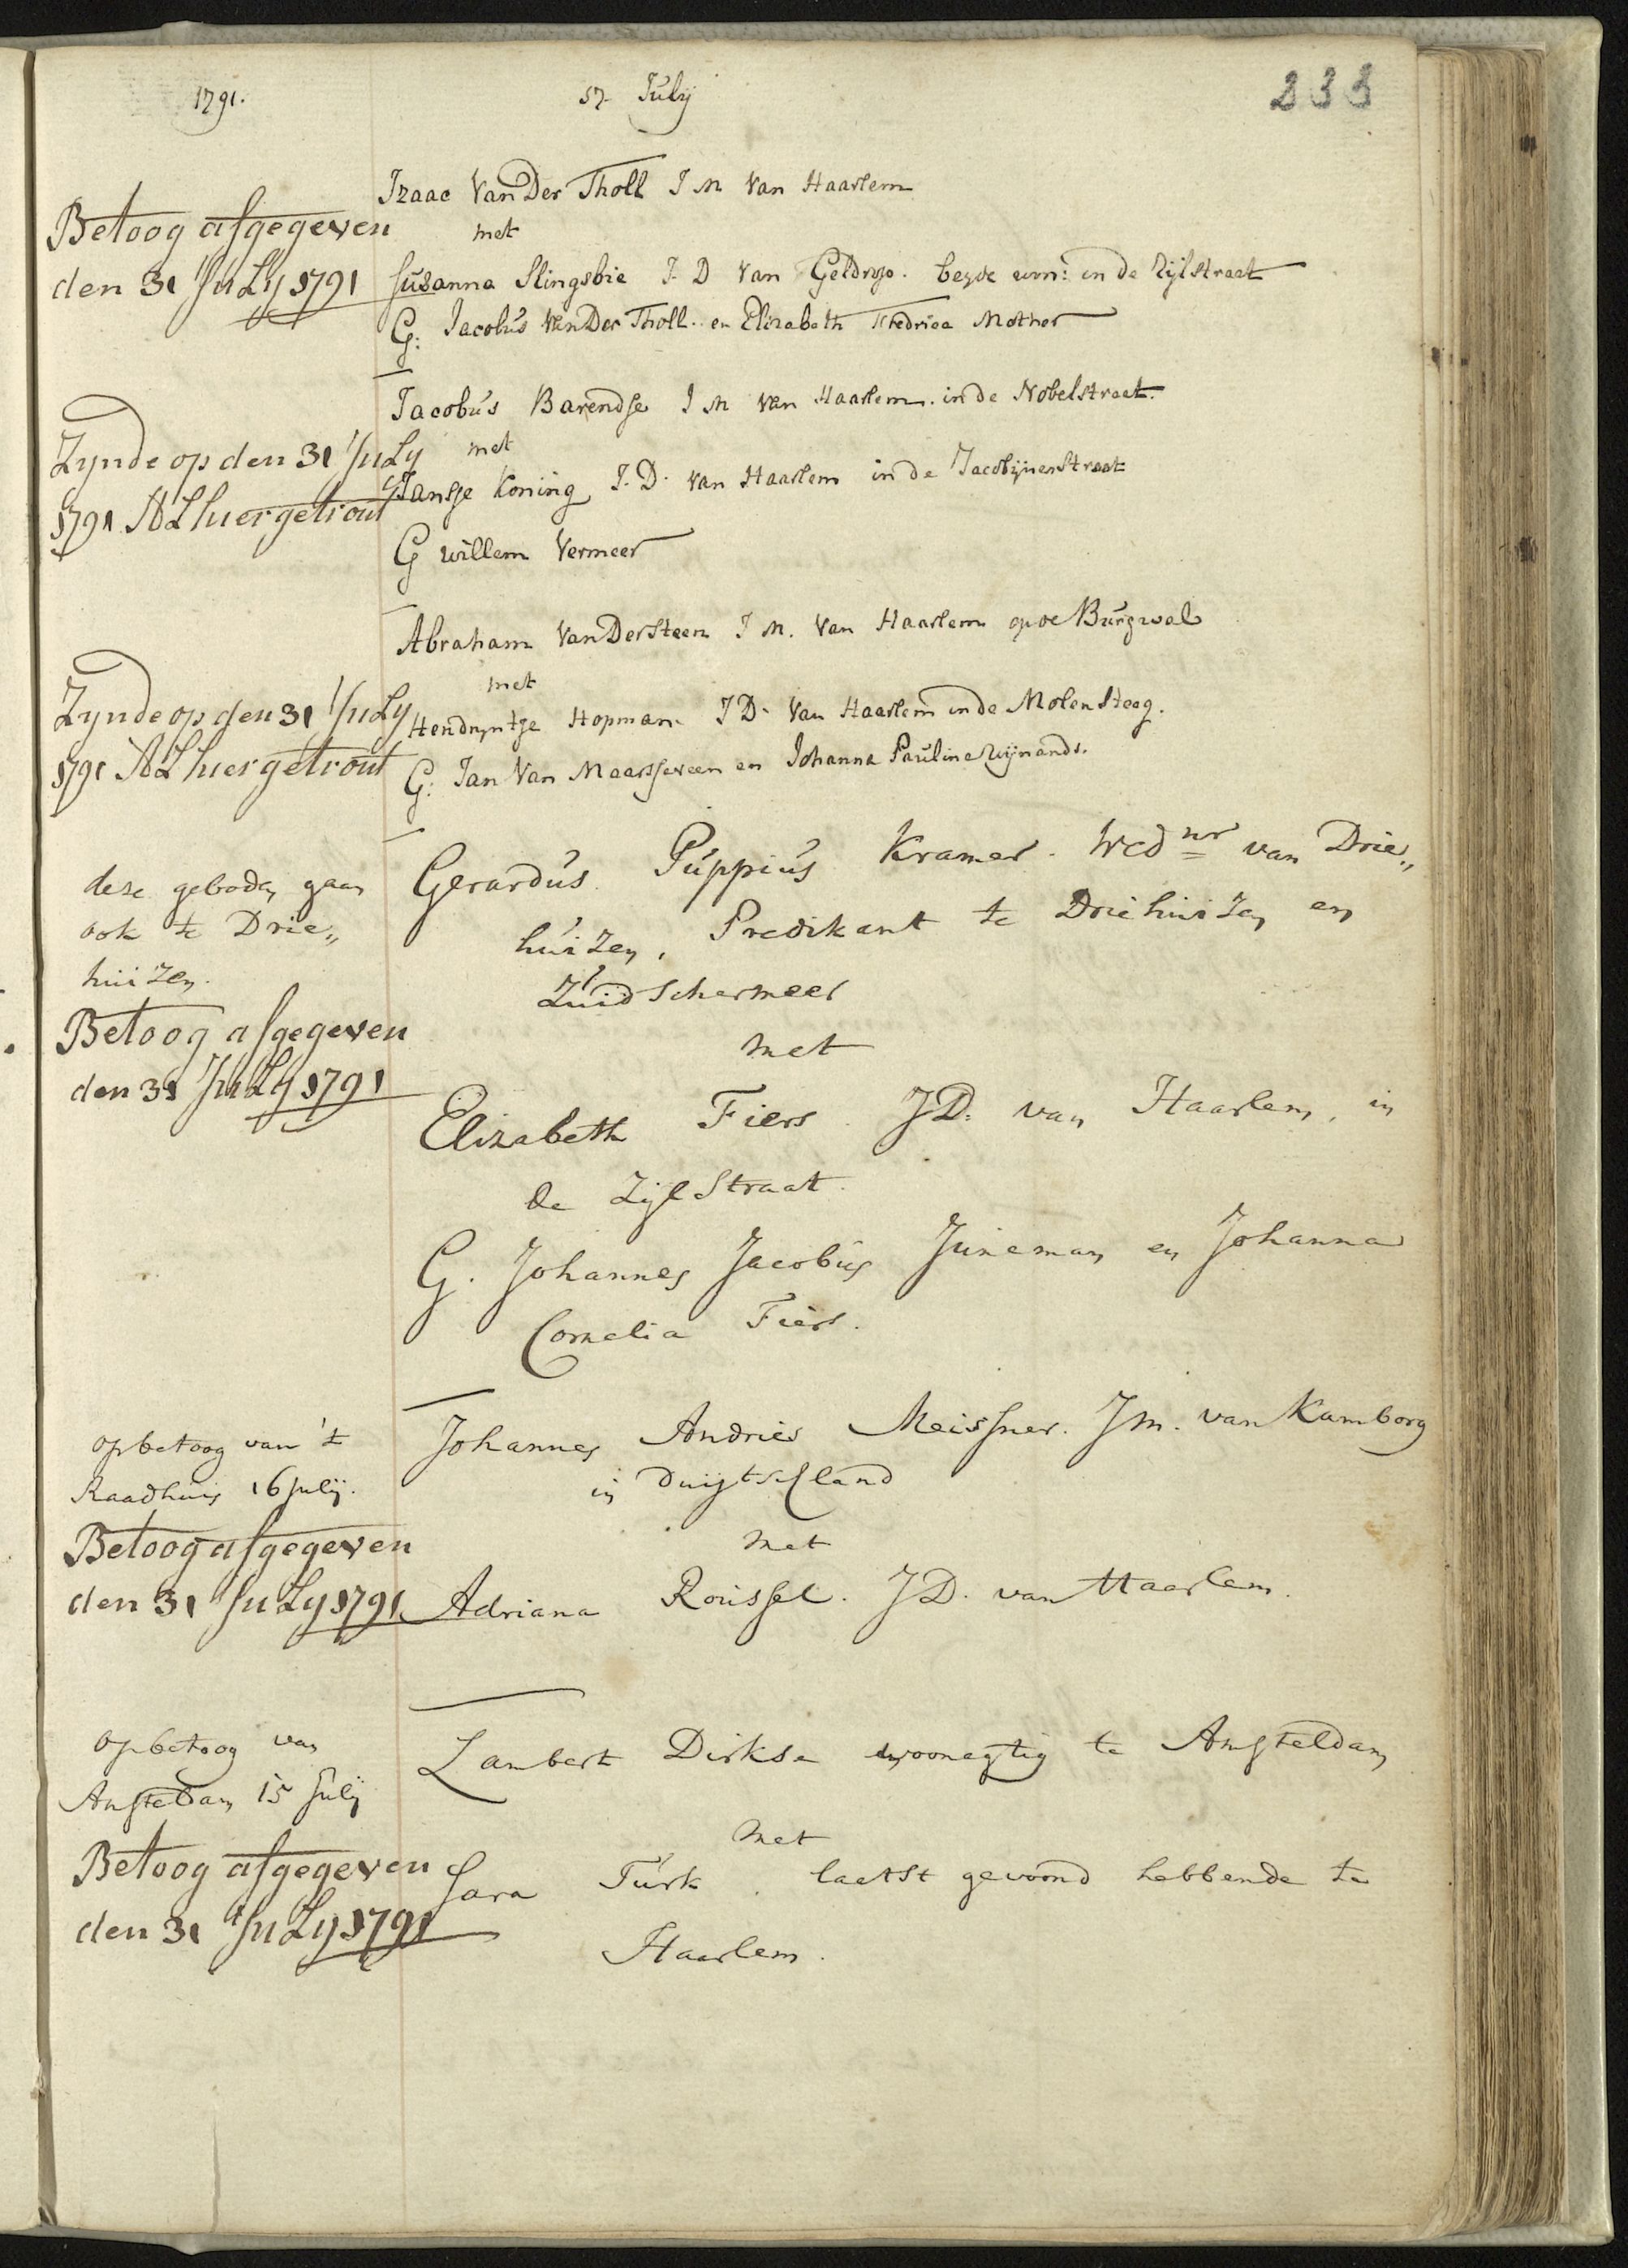 1791. 17 Julij 233
Izaac Van Der Tholl J M Van Haarlem
Betoog afgegeven
den 31 JuLy 1791
met
Susanna Slingsbie J. D Van Geldrop. beyde wm: in de Zijlstraat
G: Jacobus Van Der Tholl. en Elizabeth Fredrica
Jacobus Barendse J M van Haarlem. in de Nobelstraat.
Zynde op den 31 JuLy
1791 ALhier getrout
met
Jansje Koning J. D. van Haarlem in de Jacobijnenstraat
G willem Vermeer
Abraham Van Dersteen J M. Van Haarlem op de Burgwal
Zynde op den 31 JuLy
1791 ALhier getrout
met
Hendryntje Hopman J D. Van Haarlem in de Molensteeg.
G: Jan Van Maarseveen en Johanna Paulina Wijnands.
deze geboden gaan
ook te Drie„
huizen.
Betoog afgegeven
den 31 JuLy 1791
Gerardus Puppius Kramer. Wednr van Drie„
huizen, Predikant te Driehuizen en
Zuidschermeer
met
Elizabeth Fiers. JD: van Haarlem, in
de Zijlstraat.
G. Johannes Jacobus Juneman en Johanna
Cornelia Fiers.
op betoog van 't
Raadhuis 16 Julij.
Betoog afgegeven
den 31 JuLy 1791
Johannes Andries Meissner. Jm. van Kamborg
in Duijtschland
met
Adriana Roussel. JD. van Haarlem.
op betoog van
Amsteldam 15 Julij
Betoog afgegeven
den 31 JuLy 1791
Lambert Dirkse woonagtig te Amsteldam
met
Sara Turk. laatst gewoond hebbende te
Haarlem.